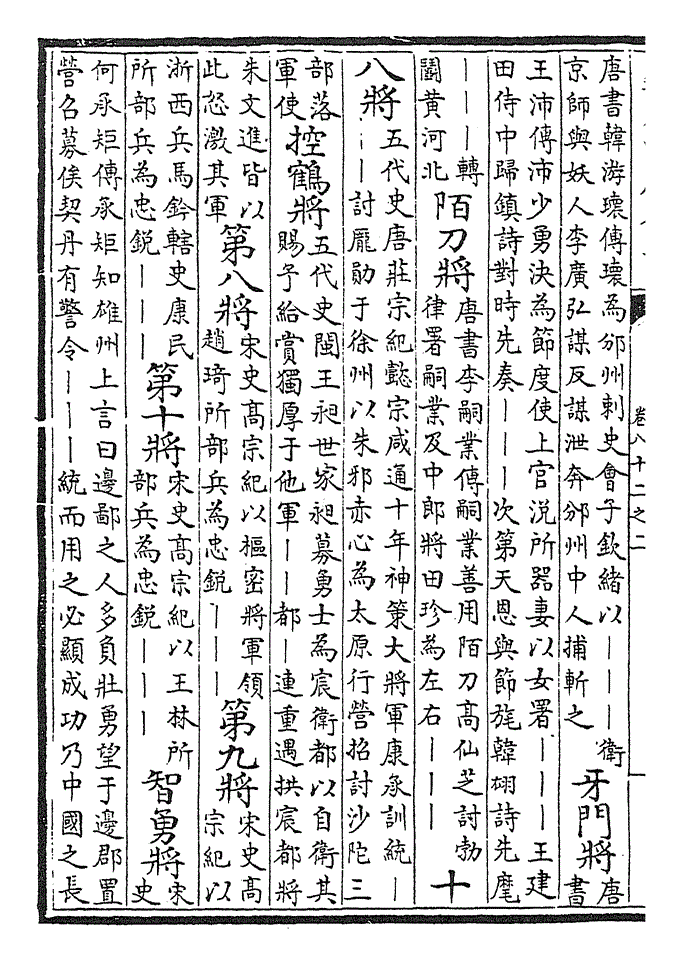 卷八十二之二
唐書韓游瓌傳瓌為邠州刺史會子欽緒以｜｜｜衛
京師與妖人李廣弘謀反謀泄奔邠州中人捕斬之
牙門將
唐
書
王沛傳沛少勇決為節度使上官涚所器妻以女署｜｜｜王建
田侍中歸鎮詩對時先奏｜｜｜次第天恩與節旄韓翃詩先麾
｜｜｜轉
關黄河北
陌刀將
唐書李嗣業傳嗣業善用陌刀高仙芝討勃
律署嗣業及中郎將田珍為左右｜｜｜
十
八將
五代史唐莊宗紀懿宗咸通十年神策大將軍康承訓統｜
｜｜討龎勛于徐州以朱邪赤心為太原行營招討沙陀三
部落
軍使
控鶴將
五代史閩王昶世家昶募勇士為宸衛都以自衛其
賜予給賞獨厚于他軍｜｜都｜連重遇拱宸都將
朱文進皆以
此怒激其軍
第八將
宋史高宗紀以樞密將軍領
趙琦所部兵為忠銳｜｜｜
第九將
宋史高
宗紀以
浙西兵馬鈐轄史康民
所部兵為忠銳｜｜｜
第十將
宋史高宗紀以王林所
部兵為忠銳｜｜｜
智勇將
宋
史
何承矩傳承矩知雄州上言曰邊鄙之人多負壯勇望于邊郡置
營召募俟契丹有警令｜｜｜統而用之必顯成功乃中國之長